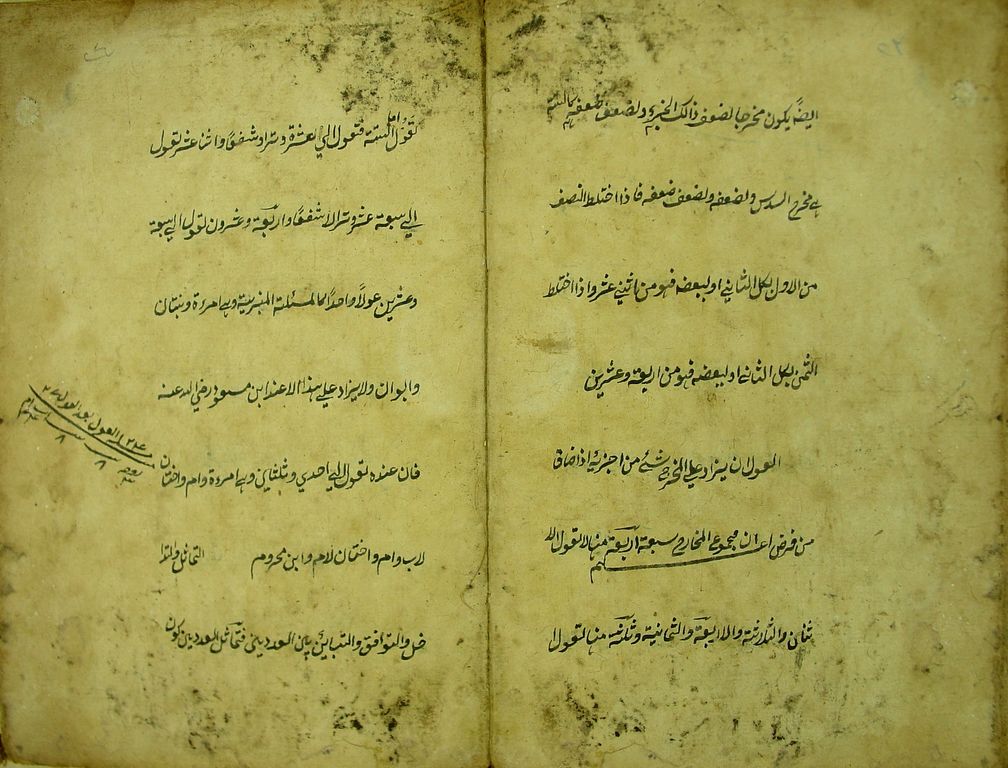 ايضا يكون مخرجا لضعف ذالك الجزء ولضعف ضعفه كالستة
هي مخرج السدس ولضعفه ولضعف ضعفه فاذا اختلط النصف
من الاول بكل الثاني او ببعضه فهو من اثني عشر واذا اختلط
الثمن بكل الثاني او ببعضه فهو من اربعة وعشرين
العول ان يزاد علي المخرج شئ من اجزائه اذا ضاق
من فرض اعلم ان مجموع المخارج سبعة اربعة منها لا تعول الا
ثنان والثلاثة والاربعة والثمانية وثلثة منها تعول
تعول اما الستة فتعول الي عشرة وترا وشفعا واثنا عشر تعول
الي سبعة عشر وترا لا شفعا واربعة وعشرون تعول الي سبعة
وعشرين عولا واحدا كالمسئلة المنبرية وهي امرءة وبنتان
وابوان ولا يزاد علي هذا الا عند ابن مسعود رضي الله عنه
فان عنده تعول الي احدي وثلثين وهي امرءة وام واختان
لاب وام واختان لام وابن محروم التماثل والتدا
خل والتوافق والتباين بين العددين فتماثل العددين كون